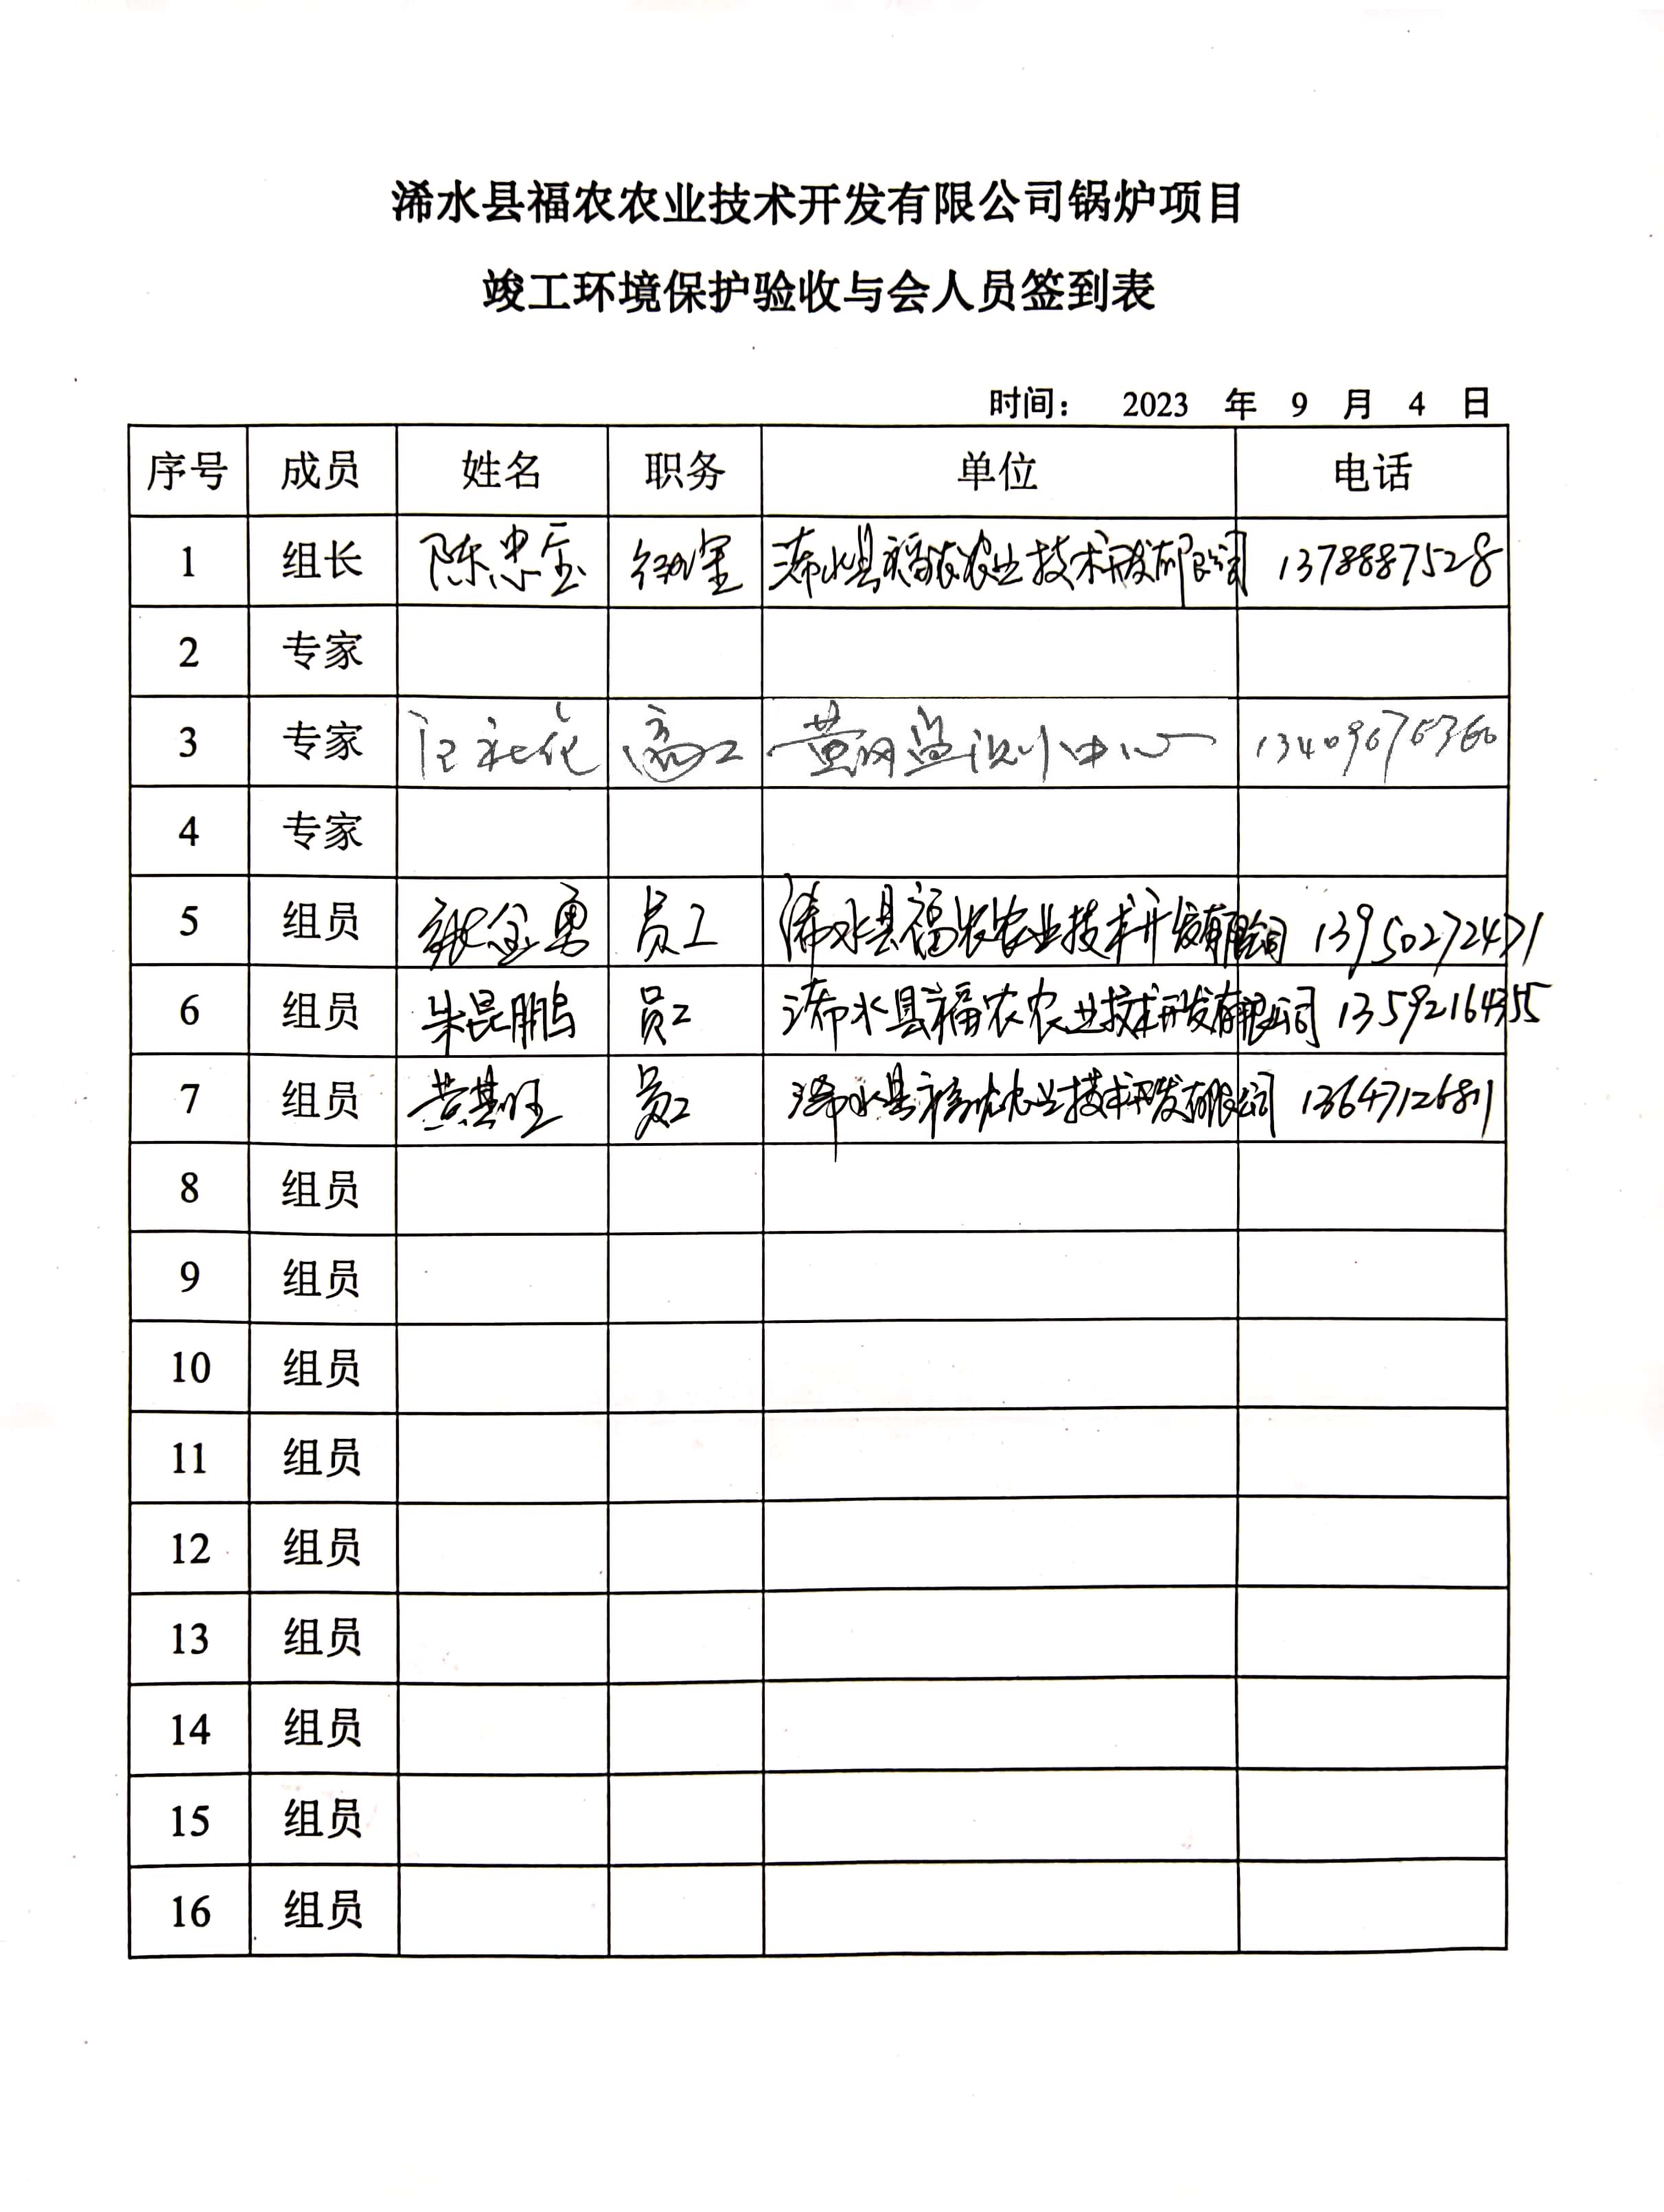 浠水县福农农业技术开发有限公司锅炉项目
竣工环境保护验收与会人员签到表
时间： 2023 年 9 月 4 日
序号 成员 姓名 职务 单位 电话
1 组长 陈忠 浠水县福农农业技术开发有限公司 13788887528
2 专家
3 专家 高工 黄冈监测中心
4 专家
5 组员 张金勇 员工 浠水县福农农业技术开发有限公司 13950272471
6 组员 朱昆鹏 员工 浠水县福农农业技术开发有限公司 13592164355
7 组员 黄基旺 员工 浠水县福农农业技术开发有限公司
8 组员
9 组员
10 组员
11 组员
12 组员
13 组员
14 组员
15 组员
16 组员